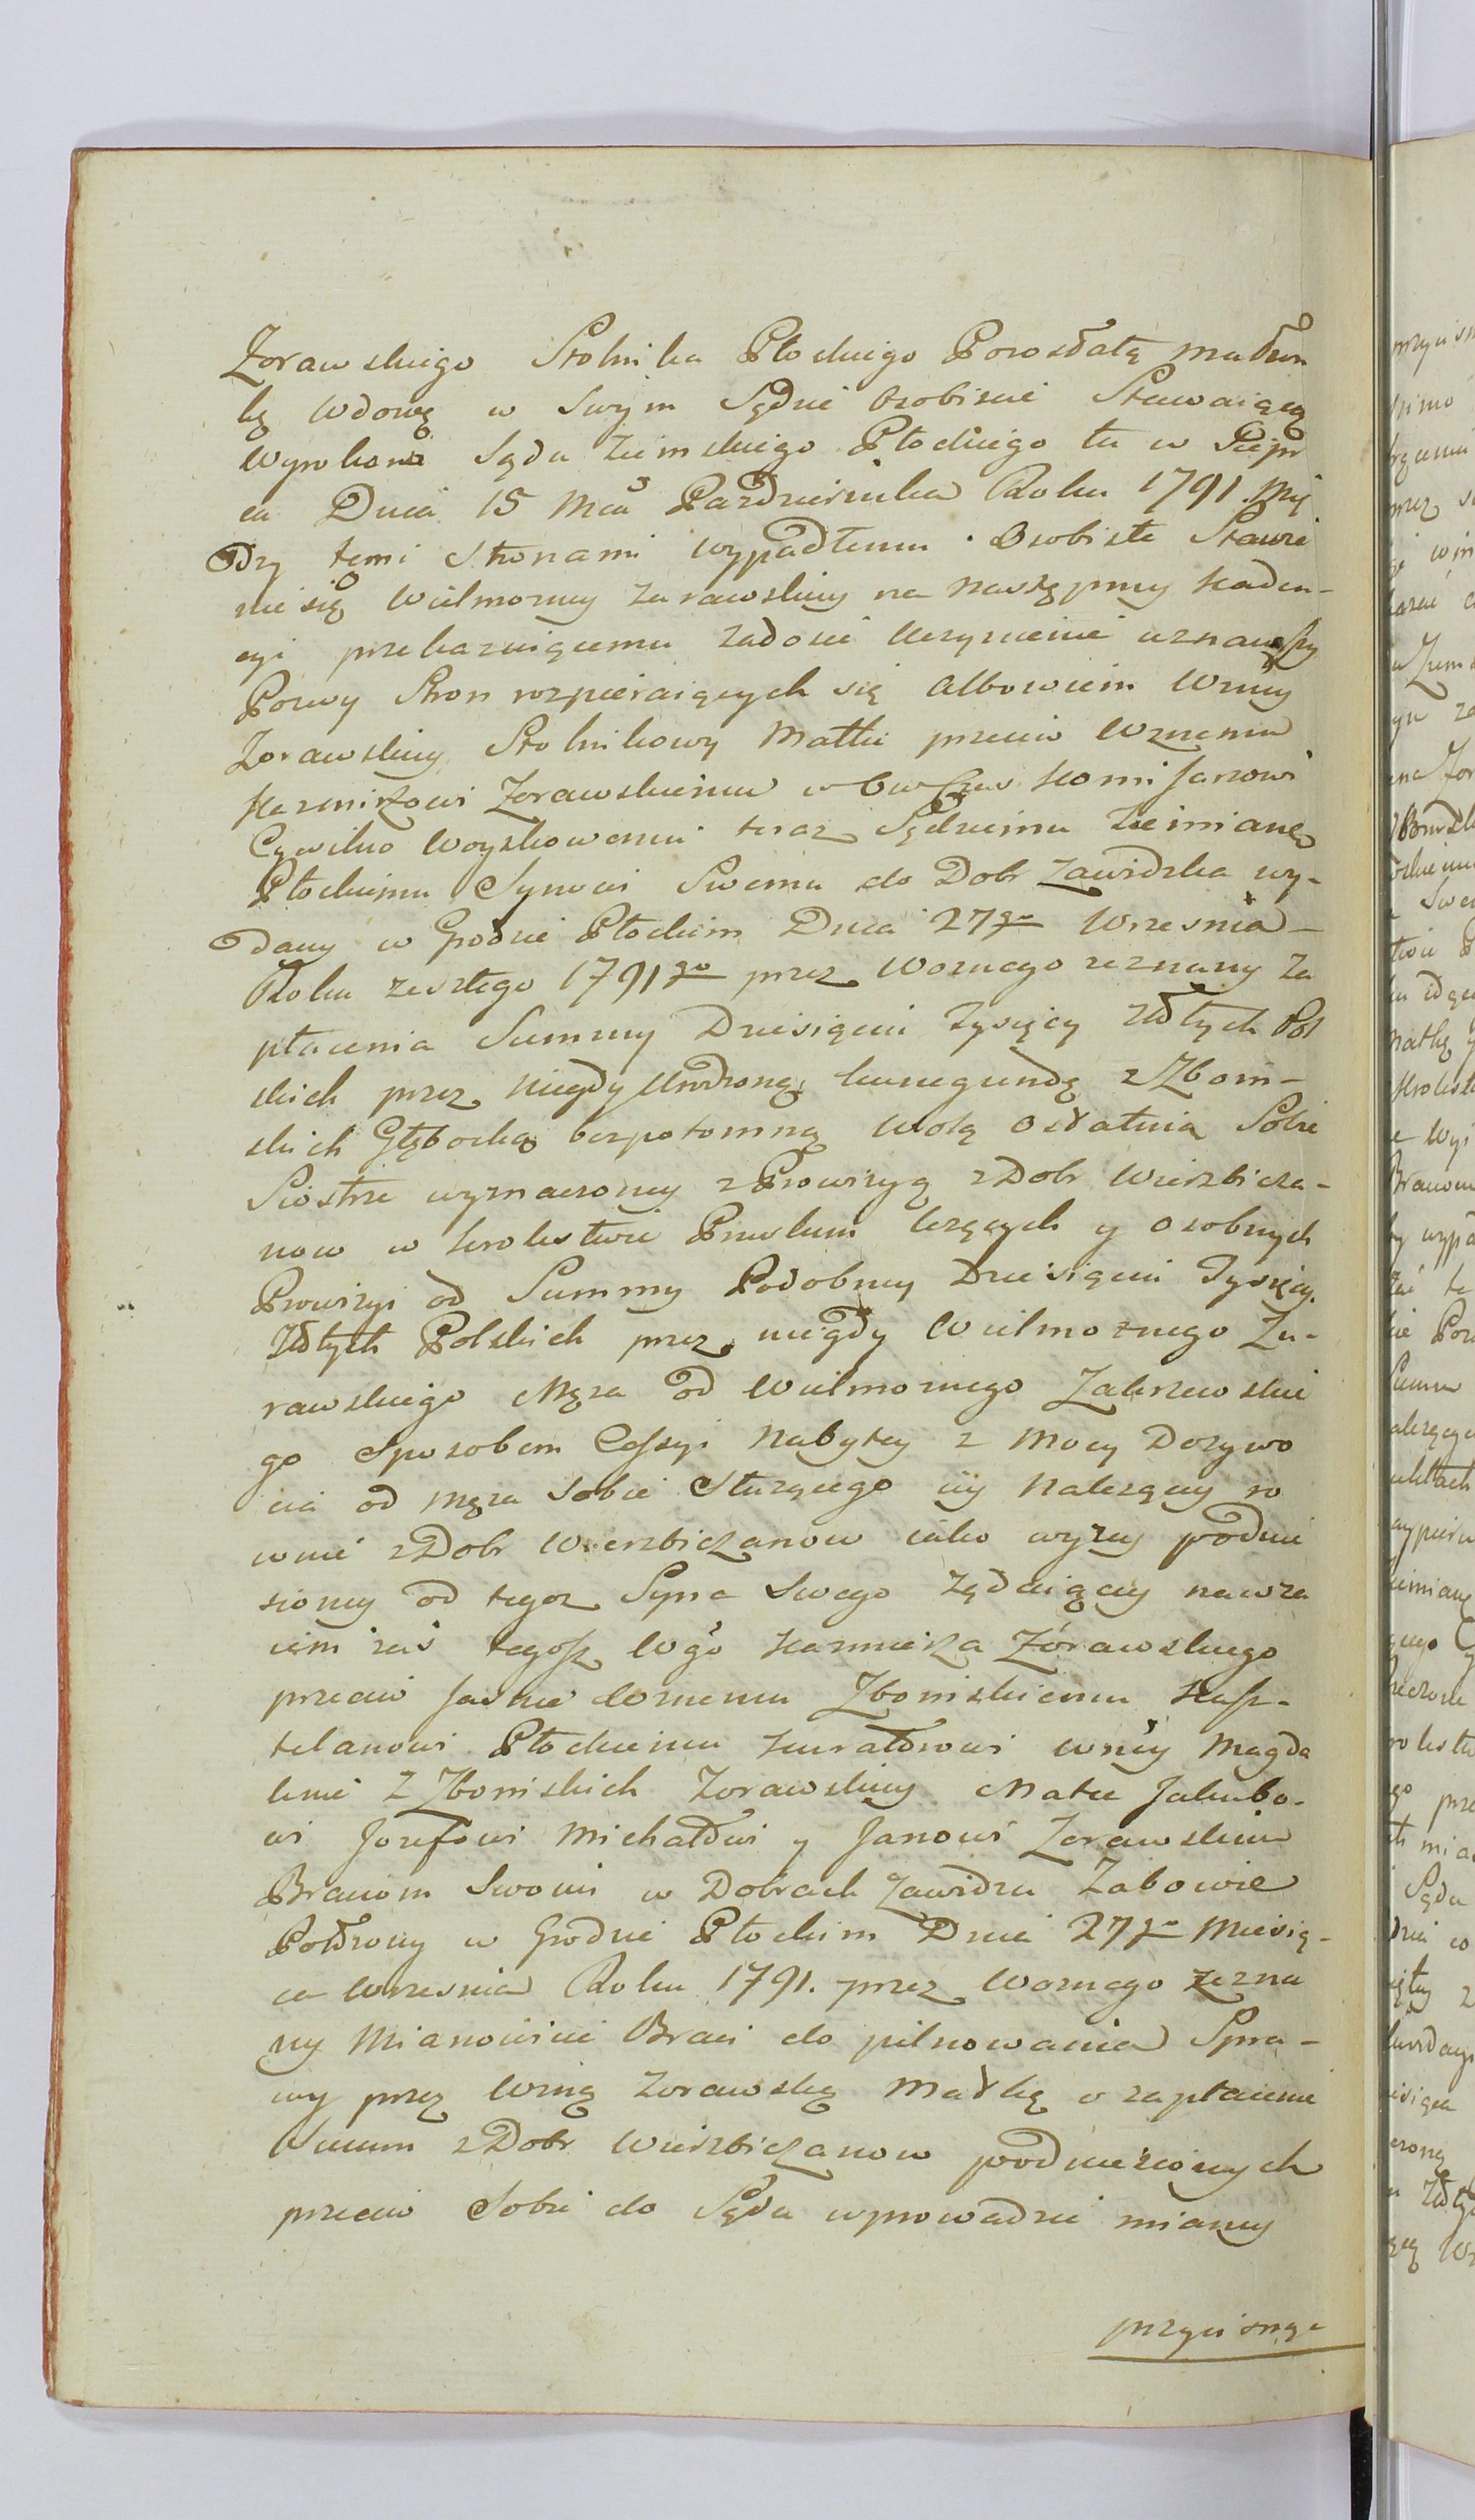 Zorawskiego Stolnika Płockiego Pozostałą małżon
kę Wdowę w Swym Sądzie Osobiscie Stawaiącą
Wyrokowi Sądu Ziemskiego Płockiego tu w Sierp
cu Dnia 15 Mca Pazdziernika Roku 1791. Mię
dzy temi Stronami wypadłemu Osobiste Stawie
nie się Wielmozney Zurawskiey na nastęmney Kaden-
cyi przekazuiącemu zadosić Uczynienie uznawszy
Pozwy Stron rozpieraiących się Albowiem Wżney
Zorawskiey Stolnikowy Matki przeciw Wznemu
Kazmirzowi Zorawskiemu w ow Czas Komisarzowi
Cywilno Woyskowemu teraz Sędziemu Ziemiane
Płockiemu Synowi Swemu do Dobr Zawidzka wy-
dany w Grodzie Płockim Dnia 27go Wrzesnia
Roku zeszłego 1791go przez Woznego zeznany Za
płacenia Summy Dziesięciu Tysięcy Złłtych Pol
skich przez niegdy Urodzoną Kunegundę z Zboin-
skich Głębocką bezpotomną wolą Ostatnią Sobie
Siostrze wyznaczoney z Prowizyą z Dobr Wierzbicza-
now w Krolestwie Pruskim lezących y osobnych
Prowizyi od Summy Podobney Dziesięciu Tysięcy
Złłtych Polskich przez niegdy Wielmoznego Zu-
rawskiego Męza od Wielmoznego Zakrzewskie
go Sposobem Cessyi Nabytey z Mocy Dozywo
cia od męza Sobie Słuzącego iey Nalezącey ro
wnie z Dobr Wierzbiczanow iako wyzey podnie
sioney od tegoz Syna Swego Ządaiącey nawza
iem zaś tegosz Wgo Kazmierza Zórawskiego
przeciw Jasnie Wznemu Zboinskiemu Kasz-
telanowi Płockiemu Kuratorowi Wney Magda
lenie Z Zboinskich Zorawskiey Matce Jakubo-
wi Jozefowi Michałowi y Janowi Zorawskim
Braciom Swoim w Dobrach Zawidzu Zabowie
Połozony w Grodzie Płockim Dnia 27go Miesią-
ca Wrzesnia Roku 1791. przez Woznego zezna
ny Mianowicie Braci do pilnowania Spra-
wy przez Wzną Zorawską Matkę o zapłacenie
Summ z Dobr Wierzbiczanow podniezionych
przeciw Sobie do Sądu wprowadzie mianey
przycisnę-